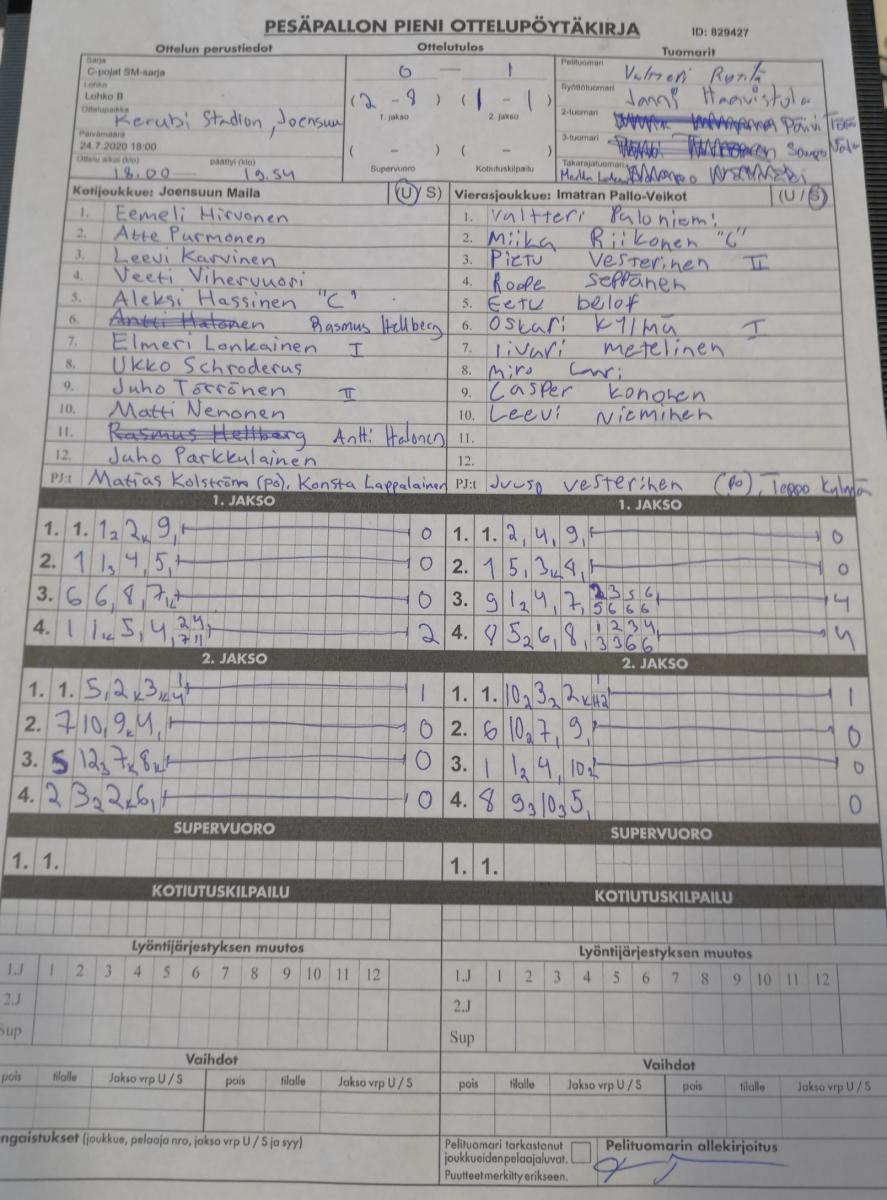 PESÄPALLON PIENI OTTELUPÖYTÄKIRJA ID: 829427
Ottelun perustiedot Ottelutulos Tuomarit
Sarja
C-pojat SM-sarja
Lohko
Lohko B
Ottelupaikka
Kerubi Stadion, Joensuu
Päivämäärä
24.7.2020 18:00
Ottelu alkoi (klo) päättyi (klo)
18.00 — 19.54
0 — 1
(2 - 8) (1 - 1)
1. jakso 2. jakso
( - ) ( - )
Supervuoro Kotiutuskilpailu
Pelituomari
Syöttötuomari Janne Haavistola
2-tuomari Päivi
3-tuomari
Takarajatuomari
Kotijoukkue: Joensuun Maila (U/S) Vierasjoukkue: Imatran Pallo-Veikot (U/S)
1. Eemeli Hirvonen 1. Valtteri Paloniemi
2. Atte Purmonen 2. Miika Riikonen "C"
3. Leevi Karvinen 3. Pietu Vesterinen II
4. Veeti Vihervuori 4. Roope Seppänen
5. Aleksi Hassinen "C" 5. Eetu belof
6. Antti Halonen Rasmus Hellberg 6. Oskari Kylmä I
7. Elmeri Lonkainen I 7. Iivari metelinen
8. Ukko Schroderus 8. Miro Lauri
9. Juho Törrönen II 9. Casper Kononen
10. Matti Nenonen 10. Leevi Nieminen
11. Rasmus Hellberg Antti Halonen 11.
12. Juho Parkkulainen 12.
PJ:t Matias Kolström (po), Konsta Lappalainen PJ:t Juuso Vesterinen (po), Teppo Kylmä
1. JAKSO 1. JAKSO
1. 1. 1₂ 2ₖ 9₁ 0 1. 1. 2₁ 4₁ 9₁ 0
2. 1 1₃ 4₁ 5₁ 0 2. 1 5₁ 3ₖ 8₁ 0
3. 6 6₁ 8₁ 7ₖ 0 3. 9 1₂ 4₁ 7₁ 2 3 5 6 4
5 6 6 6
4. 1 1ₖ 5₁ 4₁ 2 4 2 4. 8 5₂ 6₁ 8₁ 1 2 3 4 4
7 11 3 3 6 6
2. JAKSO 2. JAKSO
1. 1. 5₁ 2ₖ 3ₖ 1 1 1. 1. 10₂ 3₂ 2ₖ 1 1
4
2. 7 10₁ 9ₖ 4₁ 0 2. 6 10₂ 7₁ 9₁ 0
3. 5 12₃ 7ₖ 8ₖ 0 3. 1 1₂ 4₁ 10₂ 0
4. 2 3₂ 2ₖ 6₁ 0 4. 8 9₃ 10₃ 5₁ 0
SUPERVUORO SUPERVUORO
1. 1. 1. 1.
KOTIUTUSKILPAILU KOTIUTUSKILPAILU
Lyöntijärjestyksen muutos Lyöntijärjestyksen muutos
1.J 1 2 3 4 5 6 7 8 9 10 11 12 1.J 1 2 3 4 5 6 7 8 9 10 11 12
2.J 2.J
Sup Sup
Vaihdot Vaihdot
pois tilalle Jakso vrp U / S pois tilalle Jakso vrp U / S pois tilalle Jakso vrp U / S pois tilalle Jakso vrp U / S
ngaistukset (joukkue, pelaaja nro, jakso vrp U / S ja syy)
Pelituomari tarkastanut
joukkueidenpelaajaluvat.
Puutteet merkitty erikseen.
Pelituomarin allekirjoitus